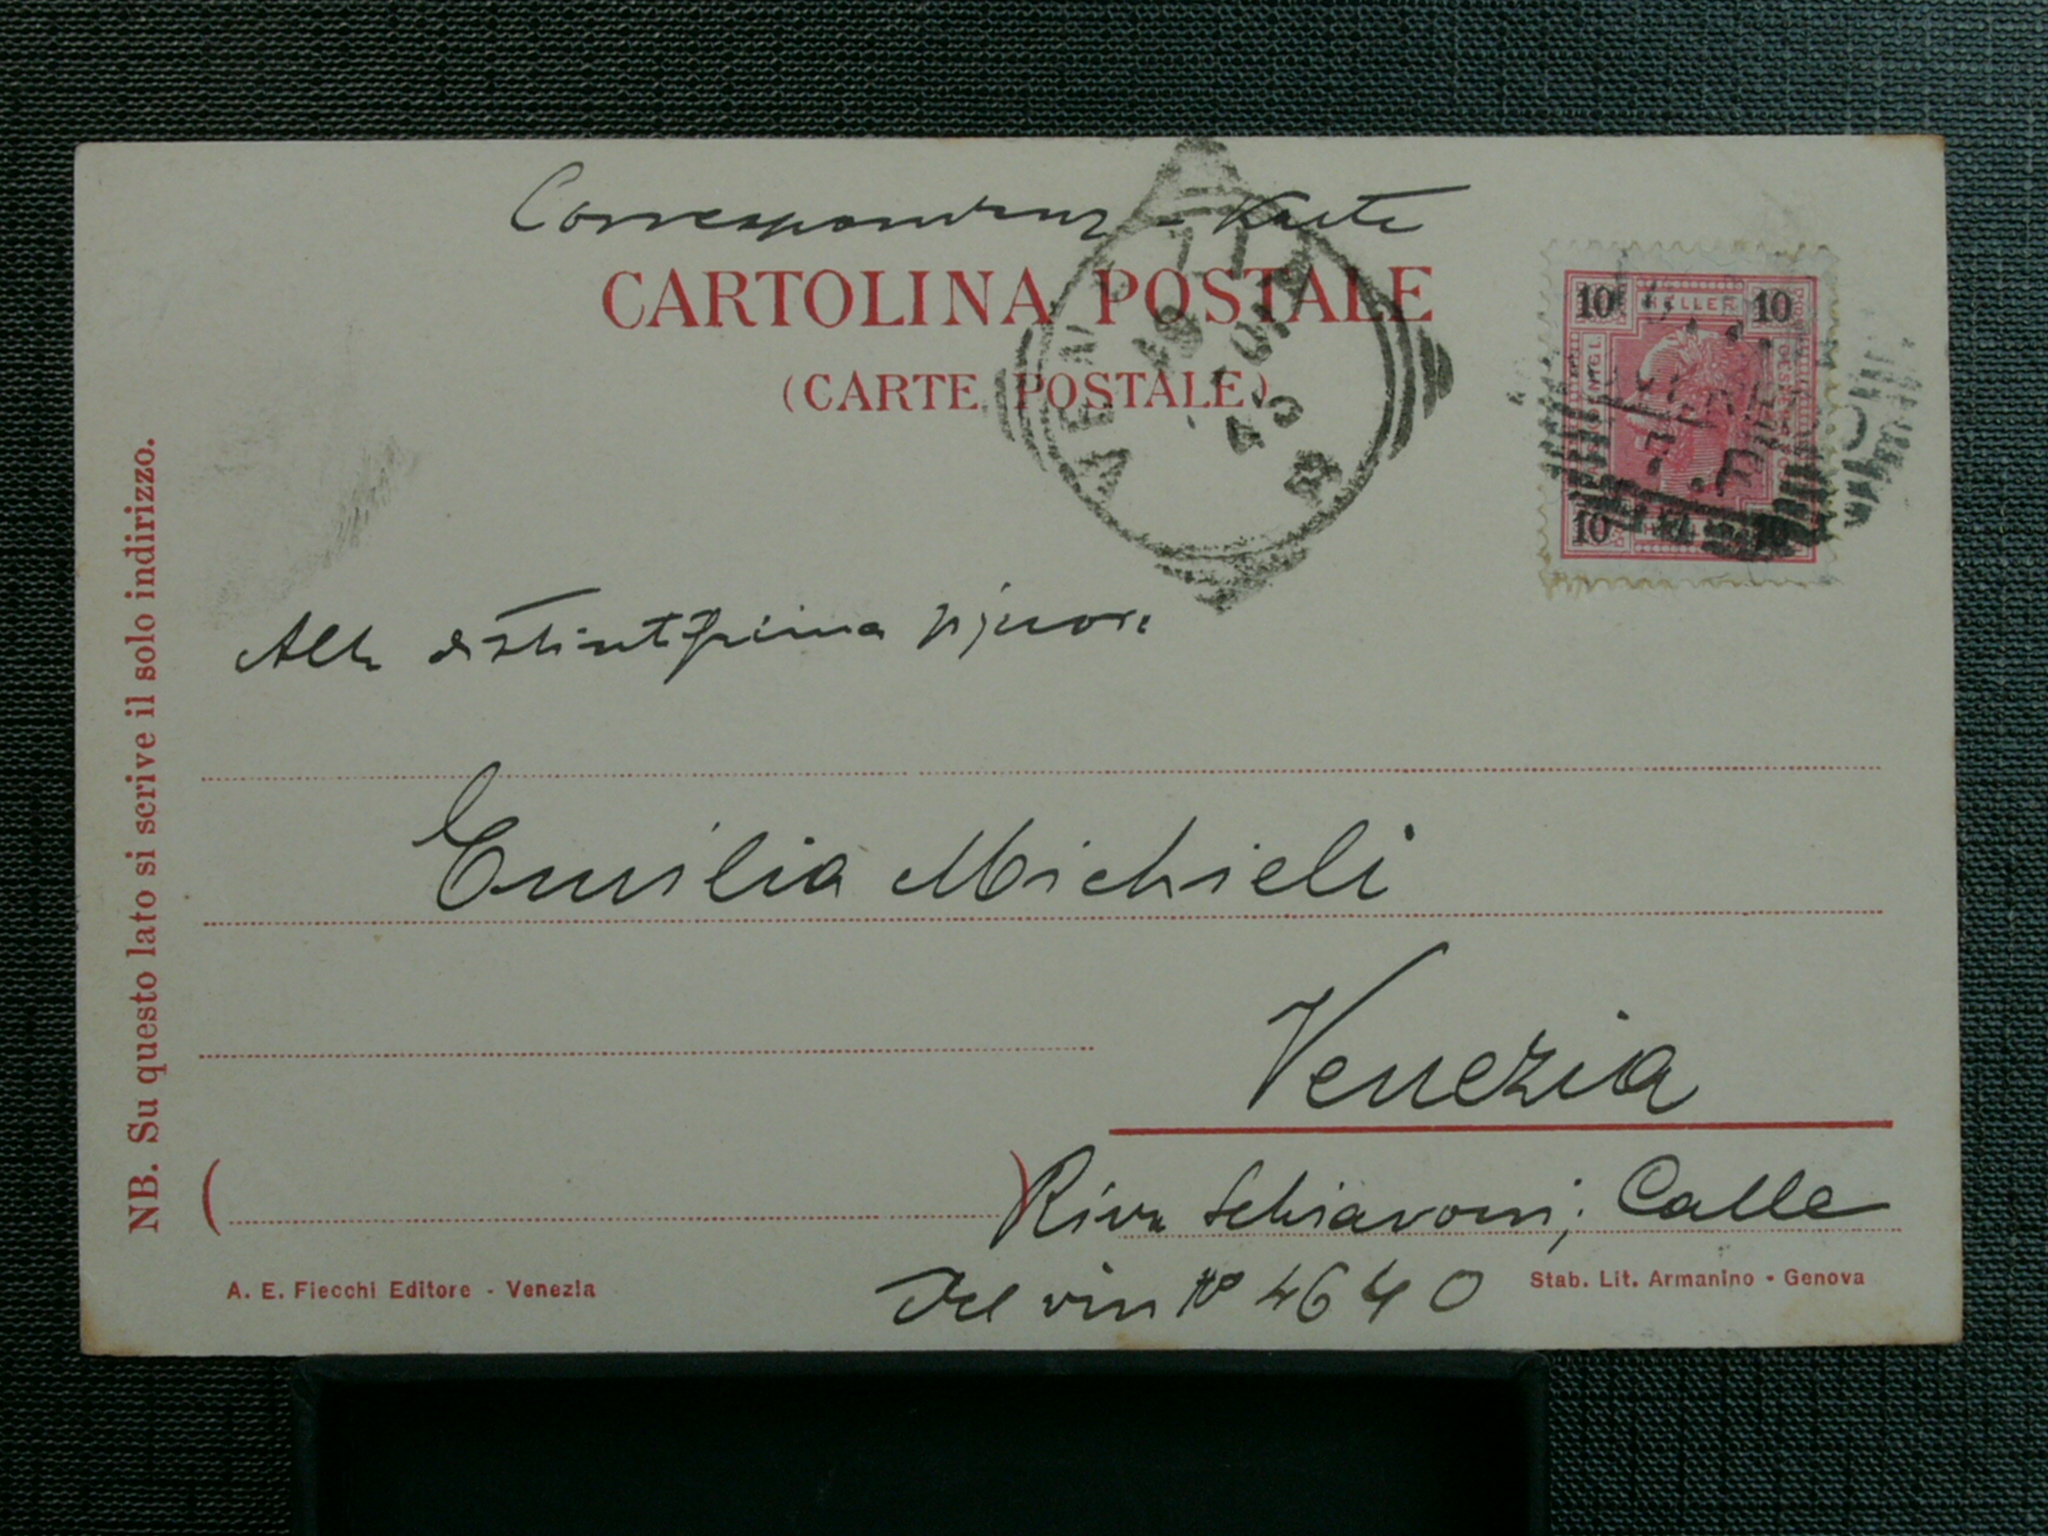 Correspondenz - Karte
CARTOLINA POSTALE
(CARTE POSTALE)
10 HELLER 10
10
VENEZIA
Alla distintissima signora
Emilia Michieli
Venezia
Riva Schiavoni, Calle
del vin No 4640
NB. Su questo lato si scrive il solo indirizzo.
A. E. Fiecchi Editore - Venezia
Stab. Lit. Armanino - Genova